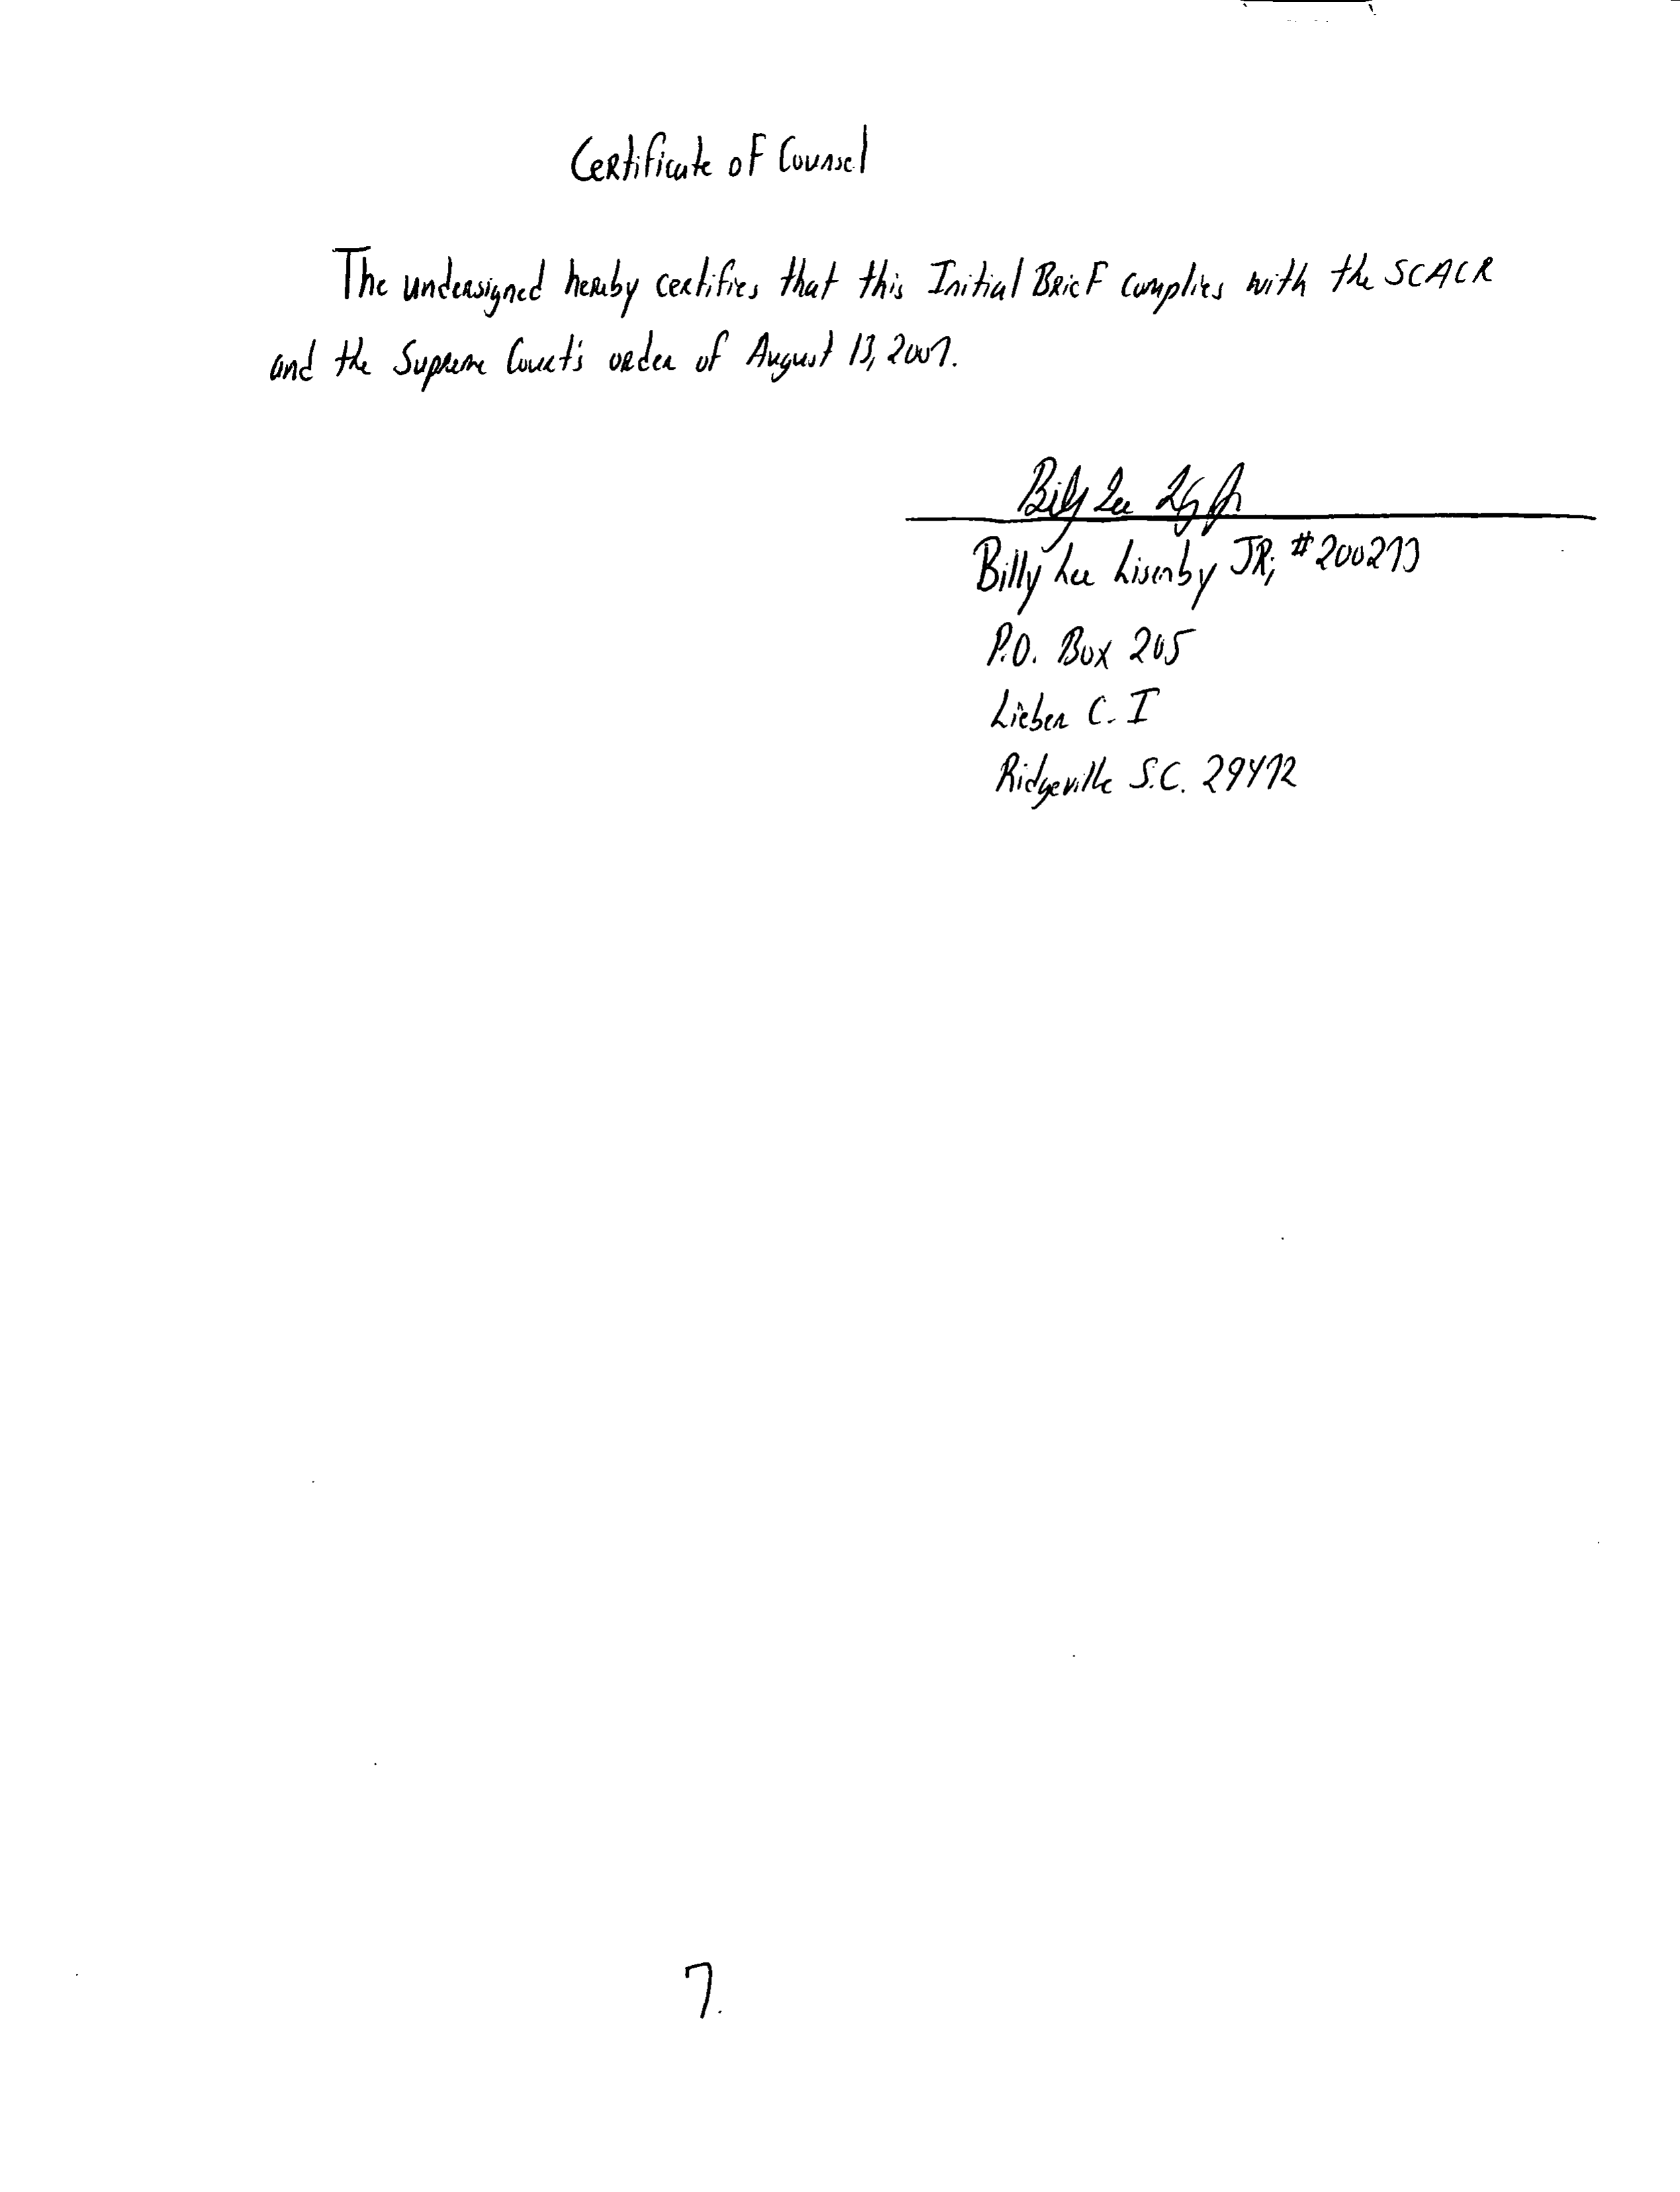 Certificate of Counsel
The undersigned hereby certifies that this Initial Brief complies with the SCACR
and the Supreme Court's order of August 13, 2007.
Billy Lee
Billy Lee Lisenby JR; #200273
P.O. Box 205
Lieber C. I
Ridgeville S.C. 29472
7.